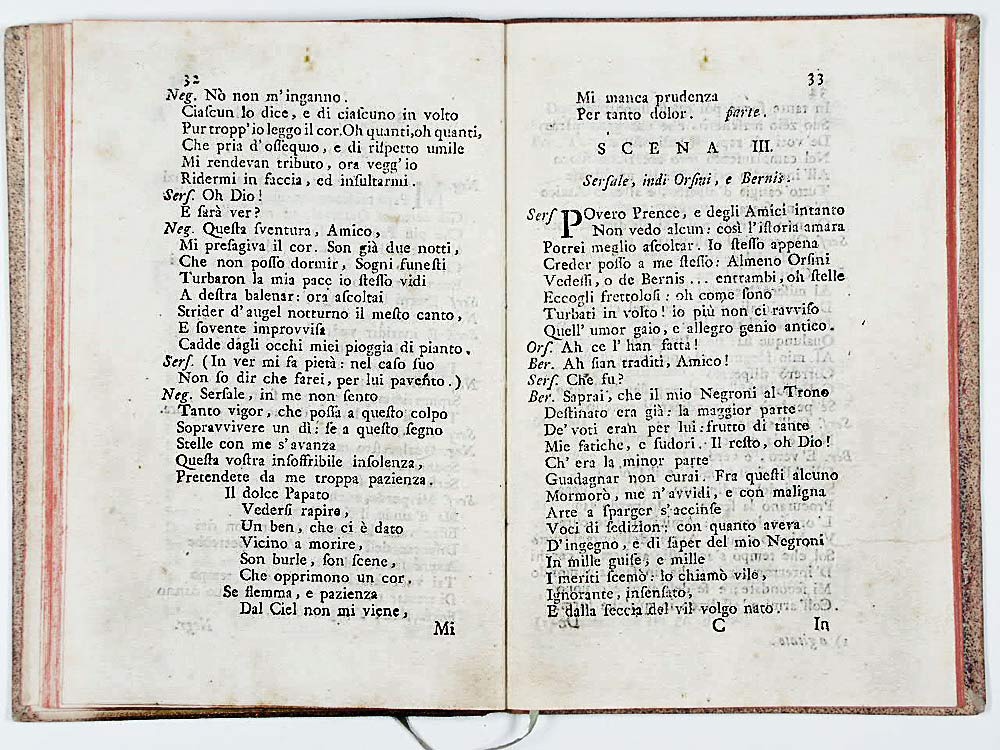 32
Neg. Nò non m'inganno.
Ciaſcun lo dice, e di ciaſcuno in volto
Pur tropp'io leggo il cor. Oh quanti, oh quanti,
Che pria d'oſſequio, e di riſpetto umile
Mi rendevan tributo, ora vegg'io
Ridermi in faccia, ed inſultarmi.
Serſ. Oh Dio!
E ſarà ver?
Neg. Queſta ſventura, Amico,
Mi preſagiva il cor. Son già due notti,
Che non poſſo dormir, Sogni funeſti
Turbaron la mia pace io ſteſſo vidi
A deſtra balenar: ora aſcoltai
Strider d'augel notturno il meſto canto,
E ſovente improvviſa
Cadde dagli occhi miei pioggia di pianto.
Serſ. (In ver mi fa pietà: nel caſo ſuo
Non ſo dir che farei, per lui pavento.)
Neg. Serſale, in me non ſento
Tanto vigor, che poſſa a queſto colpo
Sopravvivere un dì: ſe a queſto ſegno
Stelle con me s'avanza
Queſta voſtra inſoffribile inſolenza,
Pretendete da me troppa pazienza.
Il dolce Papato
Vederſi rapire,
Un ben, che ci è dato
Vicino a morire,
Son burle, ſon ſcene,
Che opprimono un cor,
Se flemma, e pazienza
Dal Ciel non mi viene,
Mi
33
Mi manca prudenza
Per tanto dolor. parte.
SCENA III.
Serſale, indi Orſini, e Bernis.
Serſ POvero Prence, e degli Amici intanto
Non vedo alcun: così l'iſtoria amara
Potrei meglio aſcoltar. Io ſteſſo appena
Creder poſſo a me ſteſſo: Almeno Orſini
Vedeſſi, o de Bernis ... entrambi, oh ſtelle
Eccogli frettoloſi: oh come ſono
Turbati in volto! io più non ci ravviſo
Quell' umor gaio, e allegro genio antico.
Orſ. Ah ce l' han fatta!
Ber. Ah ſian traditi, Amico!
Serſ. Che fu?
Ber. Saprai, che il mio Negroni al Trono
Deſtinato era già: la maggior parte
De' voti eran per lui: frutto di tante
Mie fatiche, e ſudori. Il reſto, oh Dio!
Ch' era la minor parte
Guadagnar non curai. Fra queſti alcuno
Mormorò, me n'avvidi, e con maligna
Arte a ſparger s'accinſe
Voci di ſedizion: con quanto aveva
D'ingegno, e di ſaper del mio Negroni
In mille guiſe, e mille
I meriti ſcemò: lo chiamò vile,
Ignorante, inſenſato,
E dalla feccia del vil volgo nato.
C In